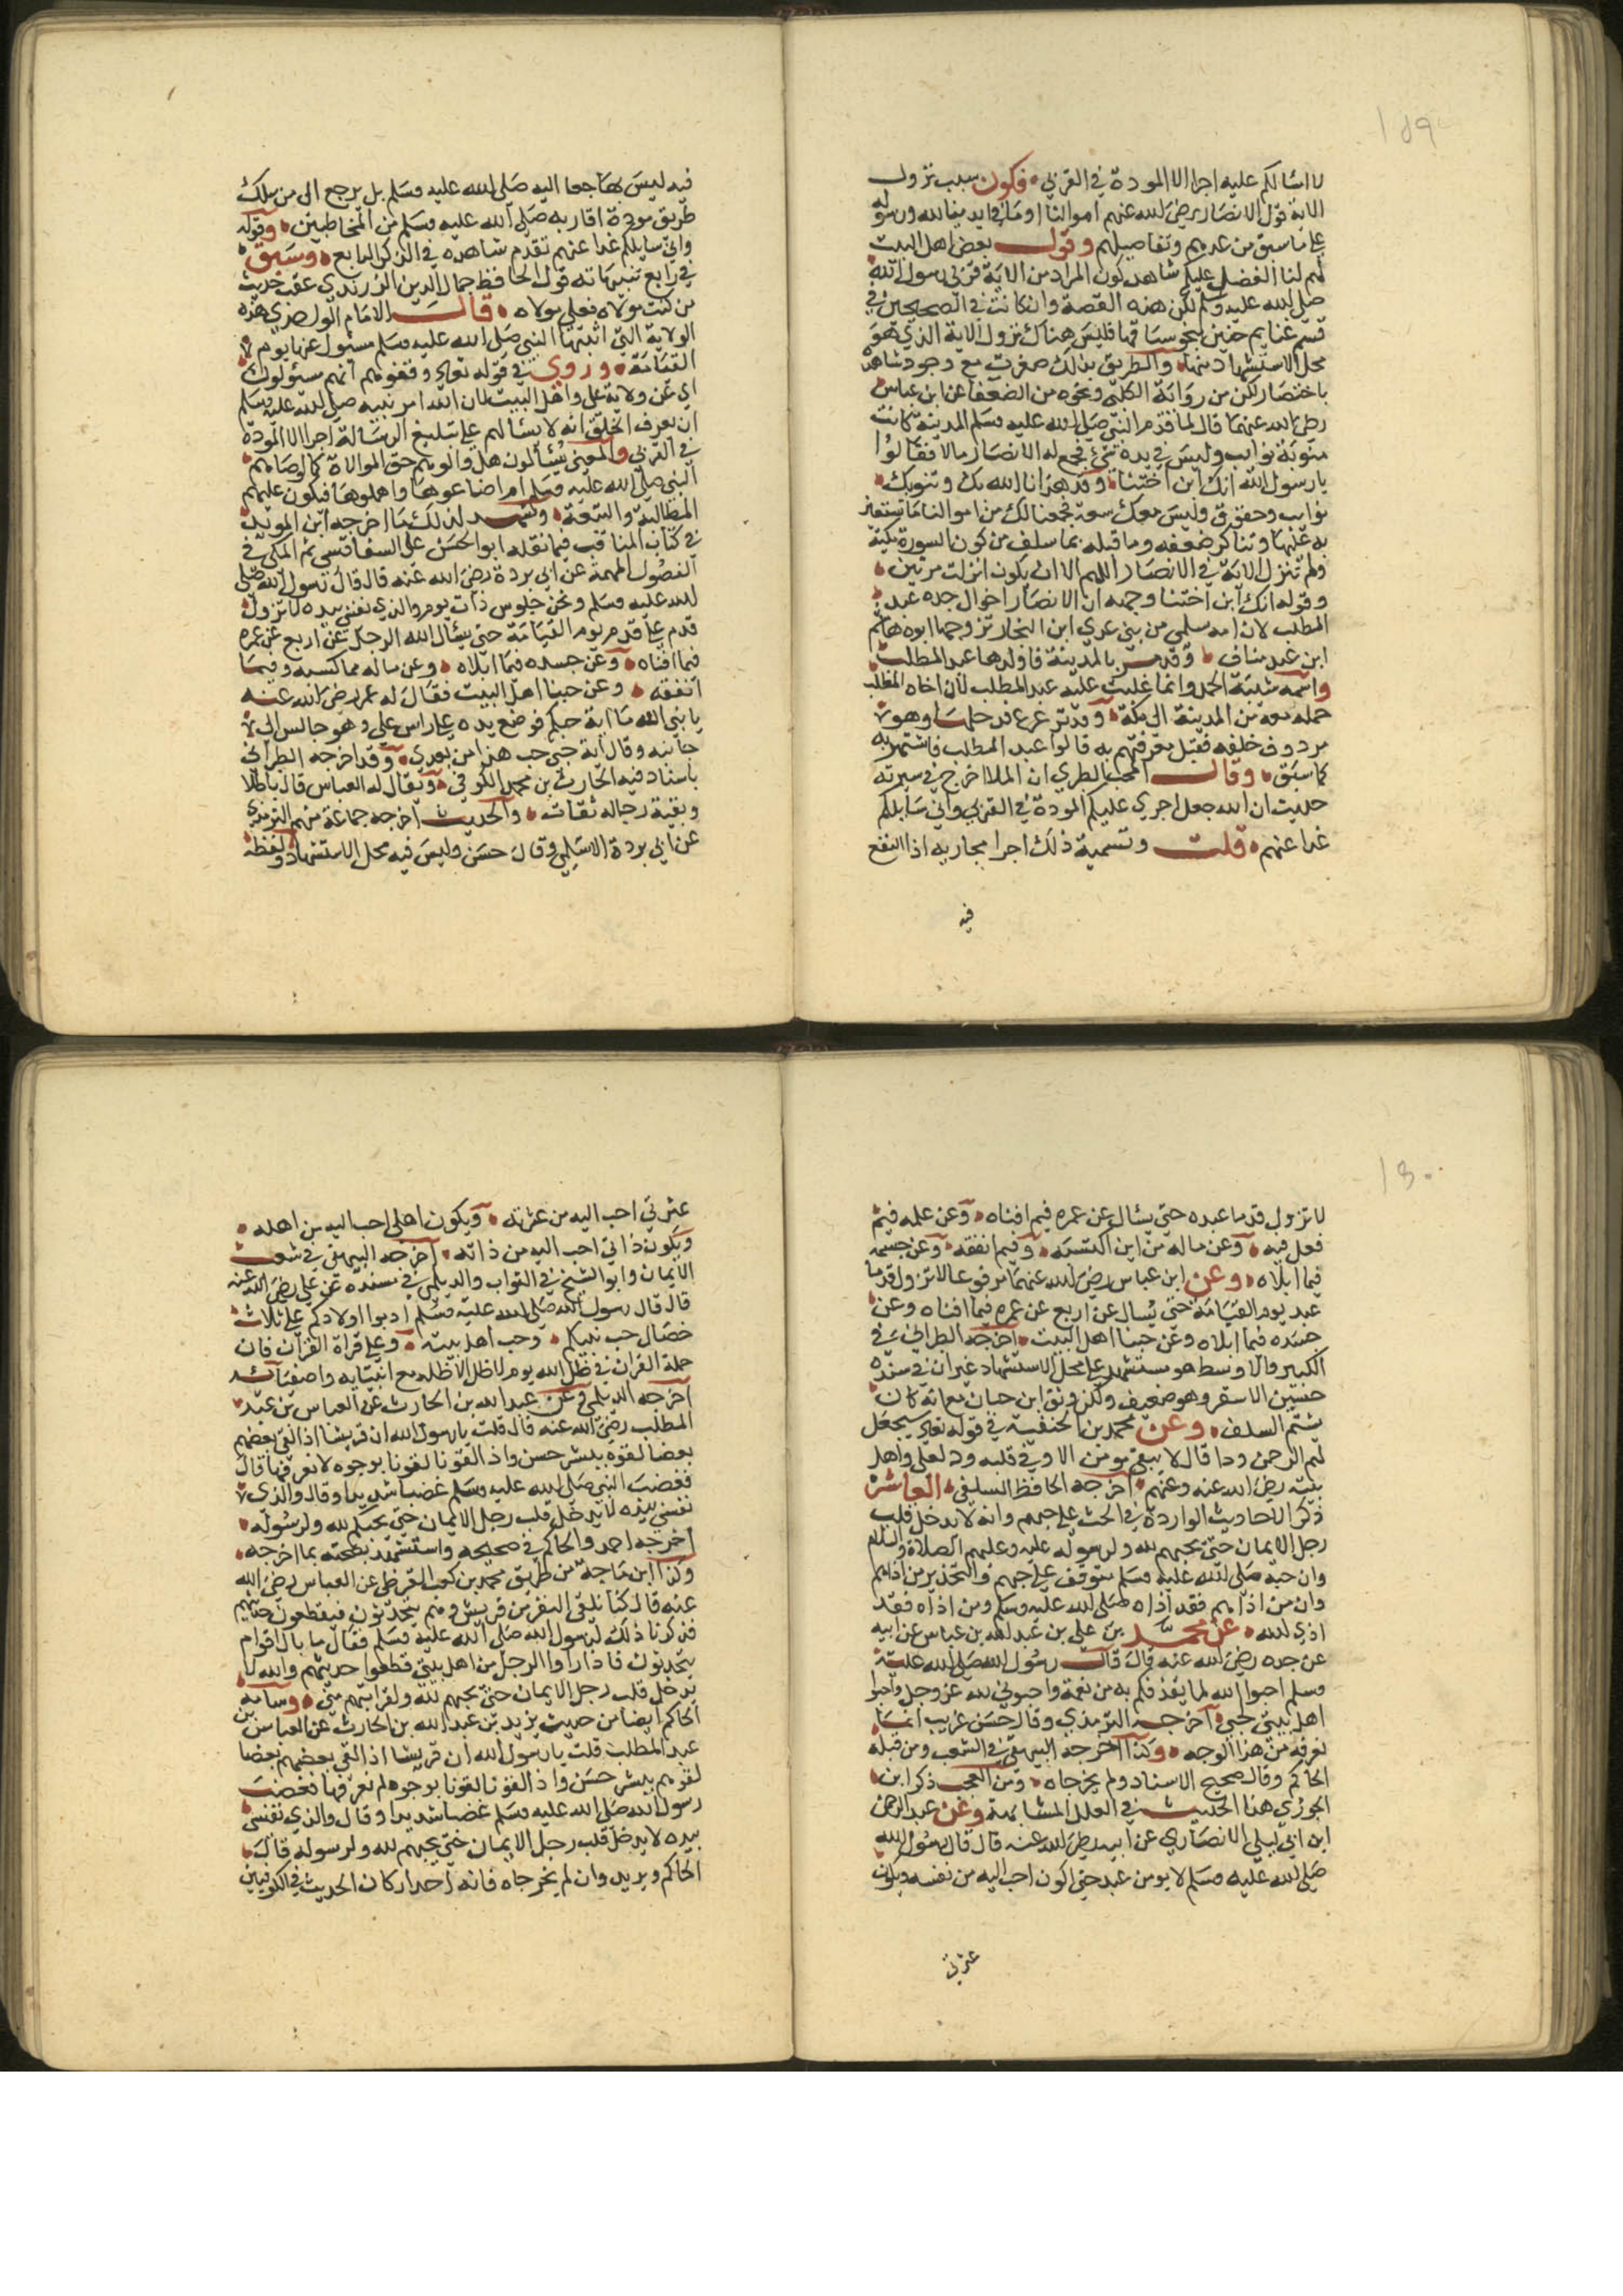 ١٥٩
لا اسالكم عليه اجرا الا المودة في القربى فكون سبب نزول
الاية قول الانصار رضي الله عنهم اموالنا وما في ايدينا لله ورسوله
على ما سبق من عدمهم وتفاصيلهم وقول بعض اهل البيت
لهم لنا الفضل عليكم شاهد كون المراد من الاية قربى رسول الله
صلى الله عليه وسلم لكن هذه القصة وان كانت في الصحيحين في
قسم غنايم حنين بنحو سياقها فليس هناك نزول الاية الذي هو
محل الاستشهاد منها والطريق بذلك ضعيف مع وجود شاهد
باختصار لكن من رواية الكلبي ونحوه من الضعفا عن ابن عباس
رضي الله عنهما قال لما قدم النبي صلى الله عليه وسلم المدينة كانت
تنوبه نوايب وليس في يده شئ فجمع له الانصار مالا فقالوا
يارسول الله انك ابن اختنا وقد هدانا الله بك وتنوبك
نوايب وحقوق وليس معك سعة فجمعنا لك من اموالنا ما تستعين
به عليها وتتاكد ضعفه وما قبله بما سلف من كون السورة مكية
ولم تنزل الاية في الانصار اللهم الا ان يكون انزلت مرتين
وقوله انك ابن اختنا وجهه ان الانصار اخوال جده عبد
المطلب لان امه سلمى من بني عدي ابن النجار تزوجها ابوه هاشم
ابن عبد مناف وقد مر بالمدينة فاولدها عبد المطلب
واسمه شيبة الحمد وانما غلب عليه عبد المطلب لان اخاه المطلب
حمله معه من المدينة الى مكة وقد ترعرع
مردوف خلفه فقيل معرفتهم به قالوا عبد المطلب فاشتهر به
كما سبق وقال المحب الطبري ان الملا اخرج في سيرته
حديث ان الله جعل اجري عليكم المودة في القربى واني سايلكم
غدا عنهم قلت وتسمية ذلك اجرا مجازيه اذ النفع
فيه
فيه ليس بها جعا اليه صلى الله عليه وسلم بل يرجع الى من سلك
طريق مودة اقاربه صلى الله عليه وسلم من المخاطبين وقوله
واني سايلكم غدا عنهم تقدم شاهده في الذكر الرابع وسبق
في رابع تنبيهاته قول الحافظ جمال الدين الزرندي عقب حديث
من كنت مولاه فعلي مولاه قال الامام الواحدي هذه
الولاية التي اثبتها النبي صلى الله عليه وسلم مسئول عنها يوم
القيامة وروي في قوله تعالى وقفوهم انهم مسئولون
اي عن ولاية علي واهل البيت لان الله امر نبيه صلى الله عليه وسلم
ان يعرف الخلق انه لا يسالهم على تبليغ الرسالة اجرا الا المودة
في القربى والمعنى يسالون هل والوهم حق الموالاة كما اوصاهم
النبي صلى الله عليه وسلم ام اضاعوها واهملوها فيكون عليهم
المطالبة والتبعة ويشهد لذلك ما اخرجه ابن المويد
في كتاب المناقب فيما نقله ابو الحسن علي السفاقسي ثم المكي في
الفصول المهمة عن ابي بردة رضي الله عنه قال قال رسول الله صلى
الله عليه وسلم ونحن جلوس ذات يوم والذي نفسي بيده لا تزول
قدم على قدم يوم القيامة حتى يسال الله الرجل عن اربع عن عمره
فيما افناه وعن جسده فيما ابلاه وعن ماله مما كسبه وفيما
انفقه وعن حبنا اهل البيت فقال له عمر رضي الله عنه
يا نبي الله ما اية حبكم فوضع يده على راس علي وهو جالس الى
جانبه وقال اية حبي حب هذا من بعدي وقد اخرجه الطبراني
باسناد فيه الحارث بن محمد الكوفي ويقال له
وبقية رجاله ثقات والحديث اخرجه جماعة منهم الترمذي
عن ابي بردة الاسلمي وقال حسن وليس فيه محل الاستشهاد ولفظه
١٦٠
لا تزول قدما عبده حتى يسال عن عمره فيم افناه وعن علمه فيم
فعل فيه وعن ماله من اين اكتسبه وفيم انفقه وعن جسمه
فيما ابلاه وعن ابن عباس رضي الله عنهما مرفوعا لا تزول قدما
عبد يوم القيامة حتى يسال عن اربع عن عمره فيما افناه وعن
جسده فيما ابلاه وعن حبنا اهل البيت اخرجه الطبراني في
الكبير والاوسط هو مستشهد على محل الاستشهاد غير ان في سنده
حسين الاشقر وهو ضعيف ولكن وثق ابن حبان مع انه كان
يشتم السلف وعن محمد بن الحنفية في قوله تعالى سيجعل
لهم الرحمن ودا قال لا يبقى مومن الا وفي قلبه ود لعلي واهل
بيته رضي الله عنه وعنهم اخرجه الحافظ السلفي العاشر
ذكر الاحاديث الواردة في الحث على حبهم وانه لا يدخل قلب
رجل الايمان حتى يحبهم لله ولرسوله عليه وعليهم الصلاة والسلام
وان حبه صلى الله عليه وسلم متوقف على حبهم والتحذير من اذاهم
وان من اذاهم فقد اذاه صلى الله عليه وسلم ومن اذاه فقد
اذى الله عن محمد بن علي بن عبد الله بن عباس عن ابيه
عن جده رضي الله عنه قال قال رسول الله صلى الله عليه
وسلم احبوا الله لما يغذوكم به من نعمة واحبوني لله عز وجل واحبوا
اهل بيتي لحبي اخرجه الترمذي وقال حسن غريب انما
نعرفه من هذا الوجه وكذا اخرجه البيهقي في الشعب ومن قبله
الحاكم وقال صحيح الاسناد ولم يخرجاه ومن العجب ذكر ابن
الجوزي هذا الحديث في العلل المتناهية وعن عبد الرحمن
ابن ابي ليلى الانصاري عن ابيه رضي الله عنه قال قال رسول الله
صلى الله عليه وسلم لا يومن عبد حتى اكون احب اليه من نفسه ويكون
عترتي
عترتي احب اليه من عترته ويكون اهلي احب اليه من اهله
ويكون ذاتي احب اليه من ذاته اخرجه البيهقي في شعب
الايمان وابو الشيخ في الثواب والديلمي في مسنده عن علي رضي الله عنه
قال قال رسول الله صلى الله عليه وسلم ادبوا اولادكم على ثلاث
خصال حب نبيكم وحب اهل بيته وعلى قراة القران فان
حملة القران في ظل الله يوم لا ظل الا ظله مع انبيايه واصفيائه
اخرجه الديلمي وعن عبد الله بن الحارث عن العباس بن عبد
المطلب رضي الله عنه قال قلت يارسول الله ان قريشا اذا لقي بعضهم
بعضا لقوه ببشر حسن واذا لقونا لقونا بوجوه لا نعرفها قال
فغضب النبي صلى الله عليه وسلم غضبا شديدا وقال والذي
نفسي بيده لا يدخل قلب رجل الايمان حتى يحبكم لله ولرسوله
اخرجه احمد والحاكم في صحيحه واستشهد بصحته بما اخرجه
وكذا ابن ماجة من طريق محمد بن كعب القرظي عن العباس رضي الله
عنه قال كنا نلقى النفر من قريش وهم يتحدثون فيقطعون حديثهم
فذكرنا ذلك لرسول الله صلى الله عليه وسلم فقال ما بال اقوام
يتحدثون فاذا راوا الرجل من اهل بيتي قطعوا حديثهم والله لا
يدخل قلب رجل الايمان حتى يحبهم لله ولقرابتهم مني وساقه
الحاكم ايضا من حديث يزيد بن عبد الله بن الحارث عن العباس بن
عبد المطلب قلت يارسول الله ان قريشا اذا لقي بعضهم بعضا
لقوهم ببشر حسن واذا لقونا لقونا بوجوه لم نعرفها فغضب
رسول الله صلى الله عليه وسلم غضبا شديدا وقال والذي نفسي
بيده لا يدخل قلب رجل الايمان حتى يحبهم لله ولرسوله قال
الحاكم ويزيد وان لم يخرجاه فانه احد اركان الحديث في الكوفيين